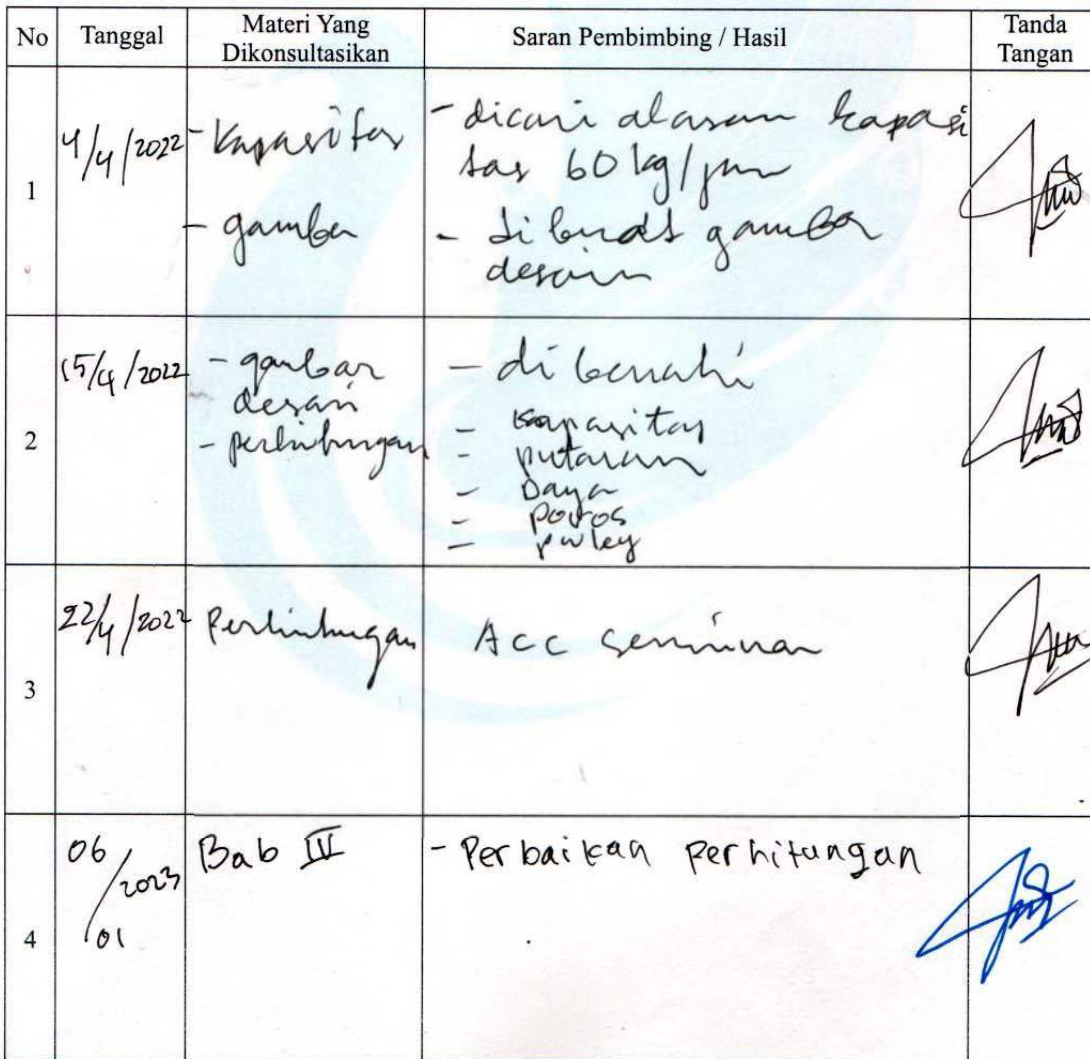 No Tanggal Materi Yang Dikonsultasikan Saran Pembimbing / Hasil Tanda Tangan
1
4/4/2022
- Kapasitas
- gambar
- dicari alasan kapasi
tas 60 kg/jam
- dibuat gambar
desain
2
15/4/2022
- gambar
desain
- perhitungan
- dibenahi
- kapasitas
- putaran
- Daya
- poros
- puley
3
22/4/2022
Perhitungan
Acc seminar
4
06/01/2023
Bab IV
- Perbaikan perhitungan